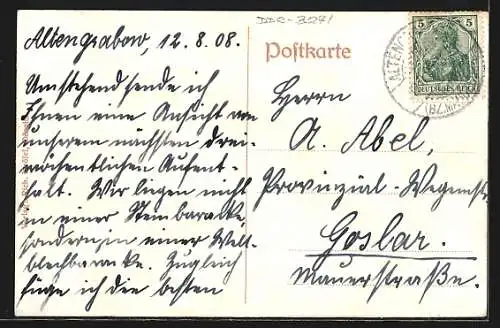 DDR-3271
Altengrabow, 12.8.08.
Umstehend sende ich
Ihnen eine Ansicht von
unserem nächsten drei-
wöchentlichen Aufent-
halt. Wir liegen nicht
in einer Steinbaracke
sondern in einer Well-
blechbaracke. Zugleich
füge ich den besten
Postkarte
5 5
DEUTSCHES REICH
ALTENG
(BZ. M
Herrn
A. Abel,
Provinzial-Wegemstr.
Goslar.
Mauerstraße.